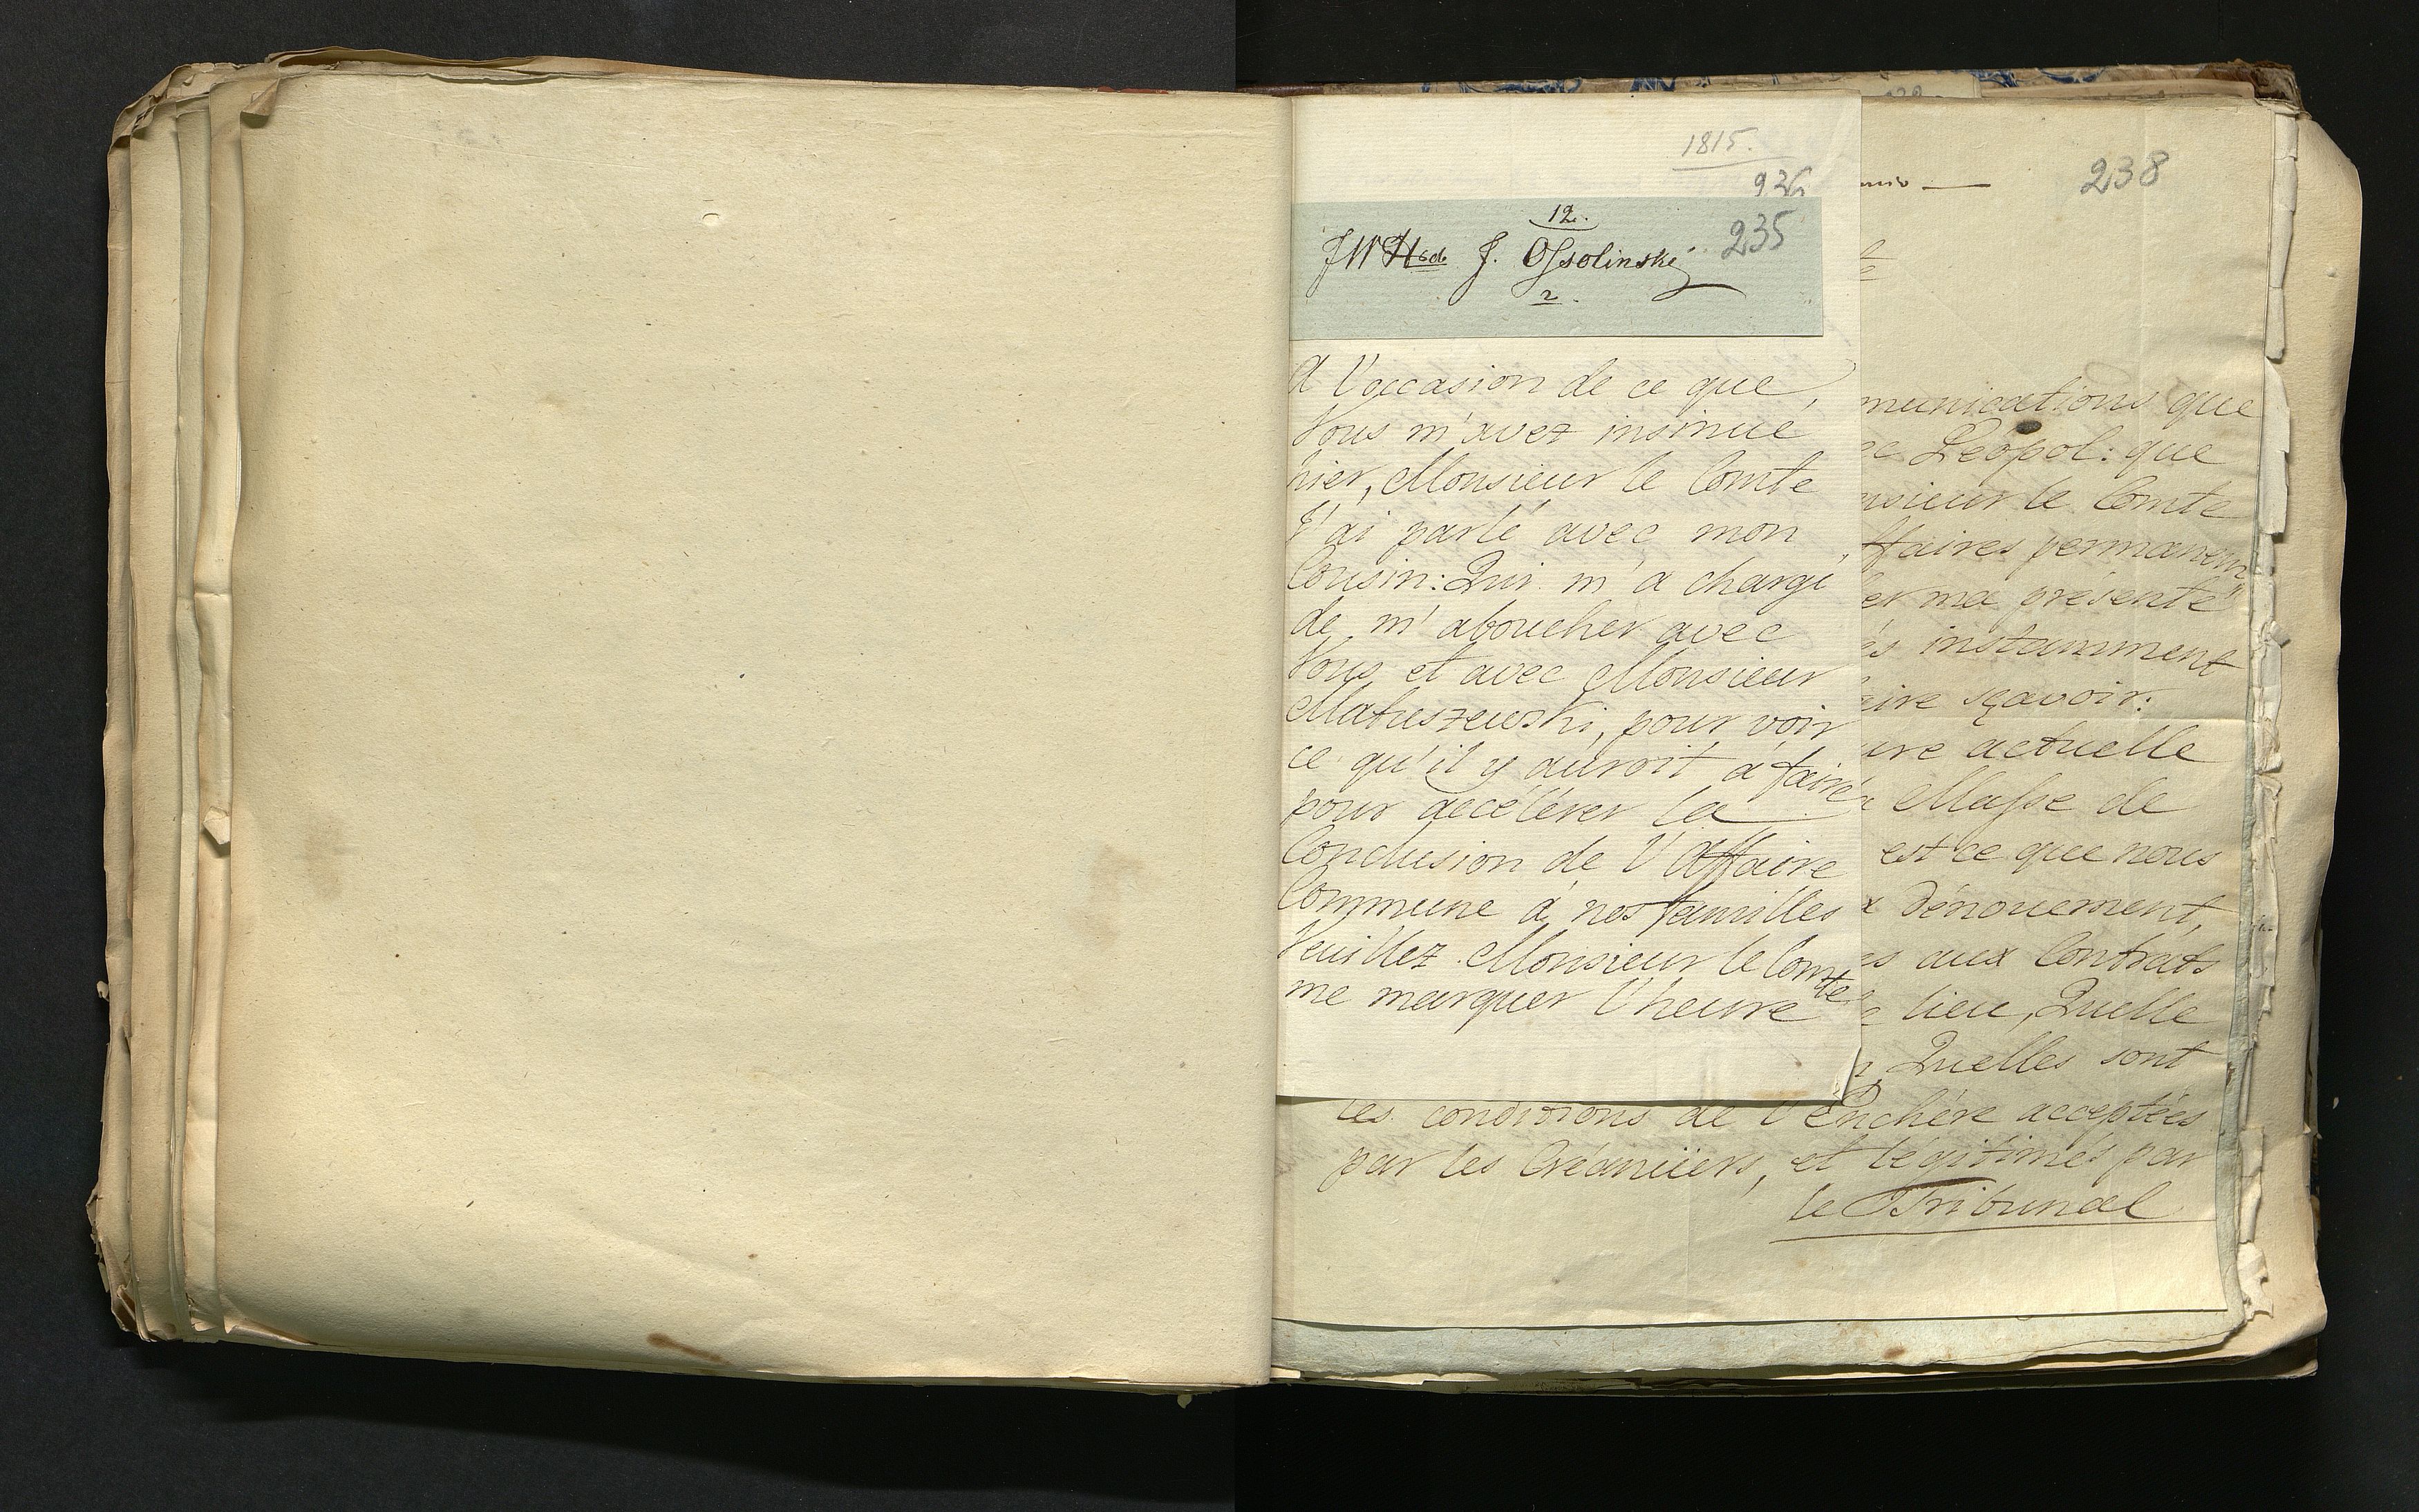 1815.
936
12.
235
J. Ossolinski
2.
A l'occasion de ce que
Vous m'avez insinué
hier, Monsieur le Comte
J'ai parlé avec mon
Cousin: Qui m'a chargé
de m'aboucher avec
Vous et avec Monsieur
Matuszewski, pour voir
ce qu'il y auroit à faire
pour accélérer la
Conclusion de l'Affaire
Commune à nos familles
Veuillez Monsieur le Comte
me marquer l'heure
238
munications que
Léopol: que
nsieur le Comte
ffaires permanen
er ma présente
instamment
aire sçavoir:
ure actuelle
Masse de
est ce que nous
Dénouement,
es aux Contrats
lieu, Quelle
Quelles sont
les conditions de l'Enchère acceptées
par les Créanciers, et légitimés par
le Tribunal